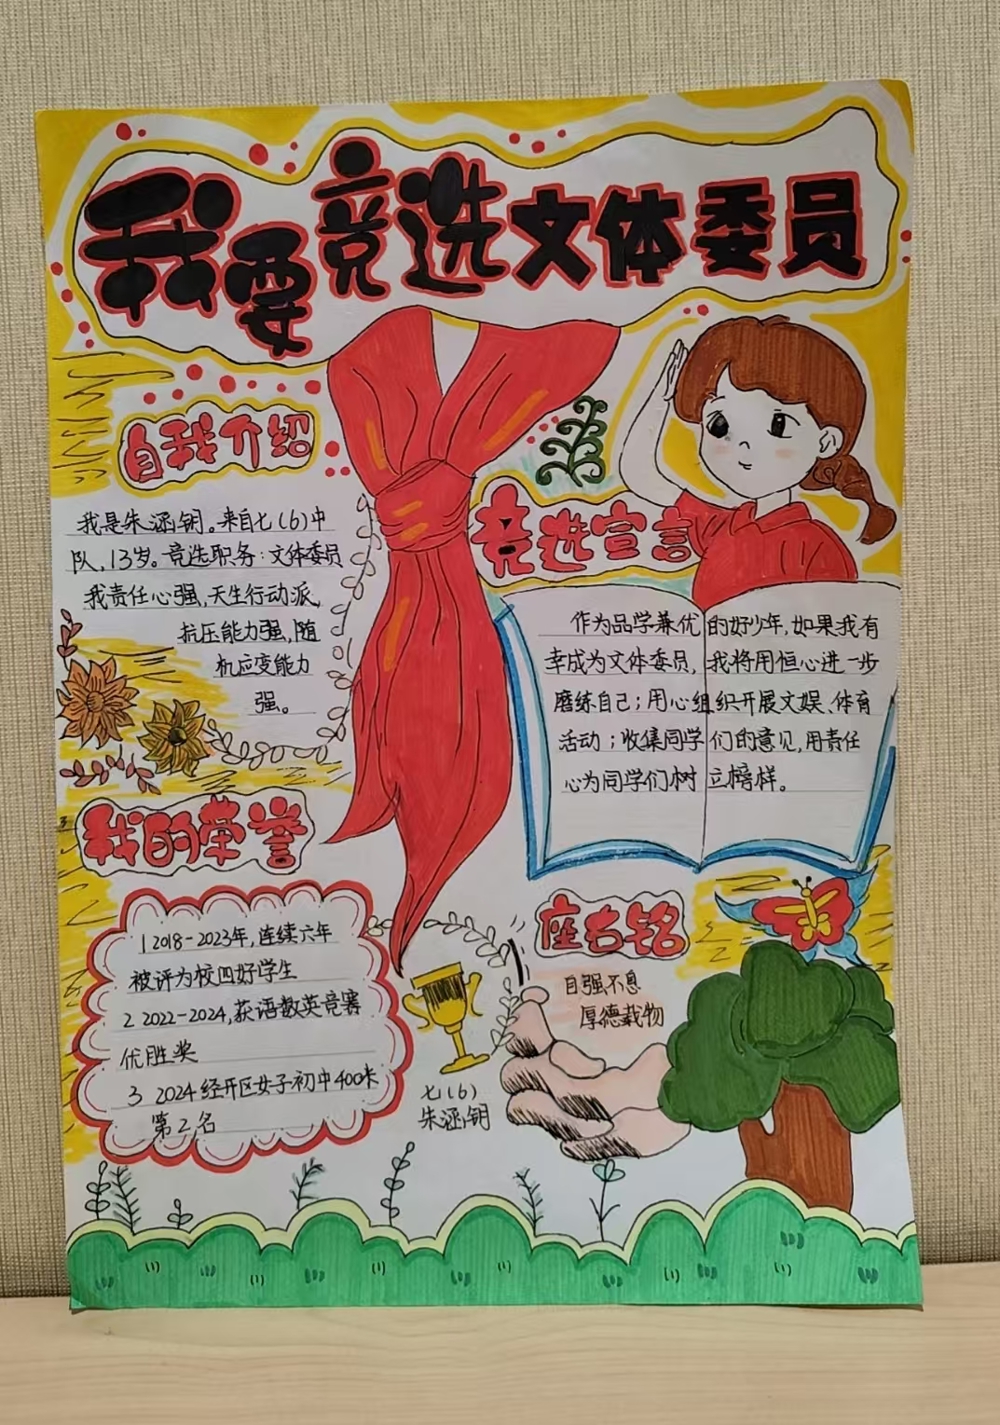 我要竞选文体委员
自我介绍
我是朱涵钥。来自七(6)中
队,13岁。竞选职务:文体委员
我责任心强,天生行动派,
抗压能力强,随
机应变能力
强。
竞选宣言
作为品学兼优的好少年,如果我有
幸成为文体委员,我将用恒心进一步
磨练自己;用心组织开展文娱、体育
活动;收集同学们的意见,用责任
心为同学们树立榜样。
我的荣誉
1 2018-2023年,连续六年
被评为校四好学生
2 2022-2024,获语数英竞赛
优胜奖
3 2024经开区女子初中400米
第2名
座右铭
自强不息
厚德载物
七(6)
朱涵钥